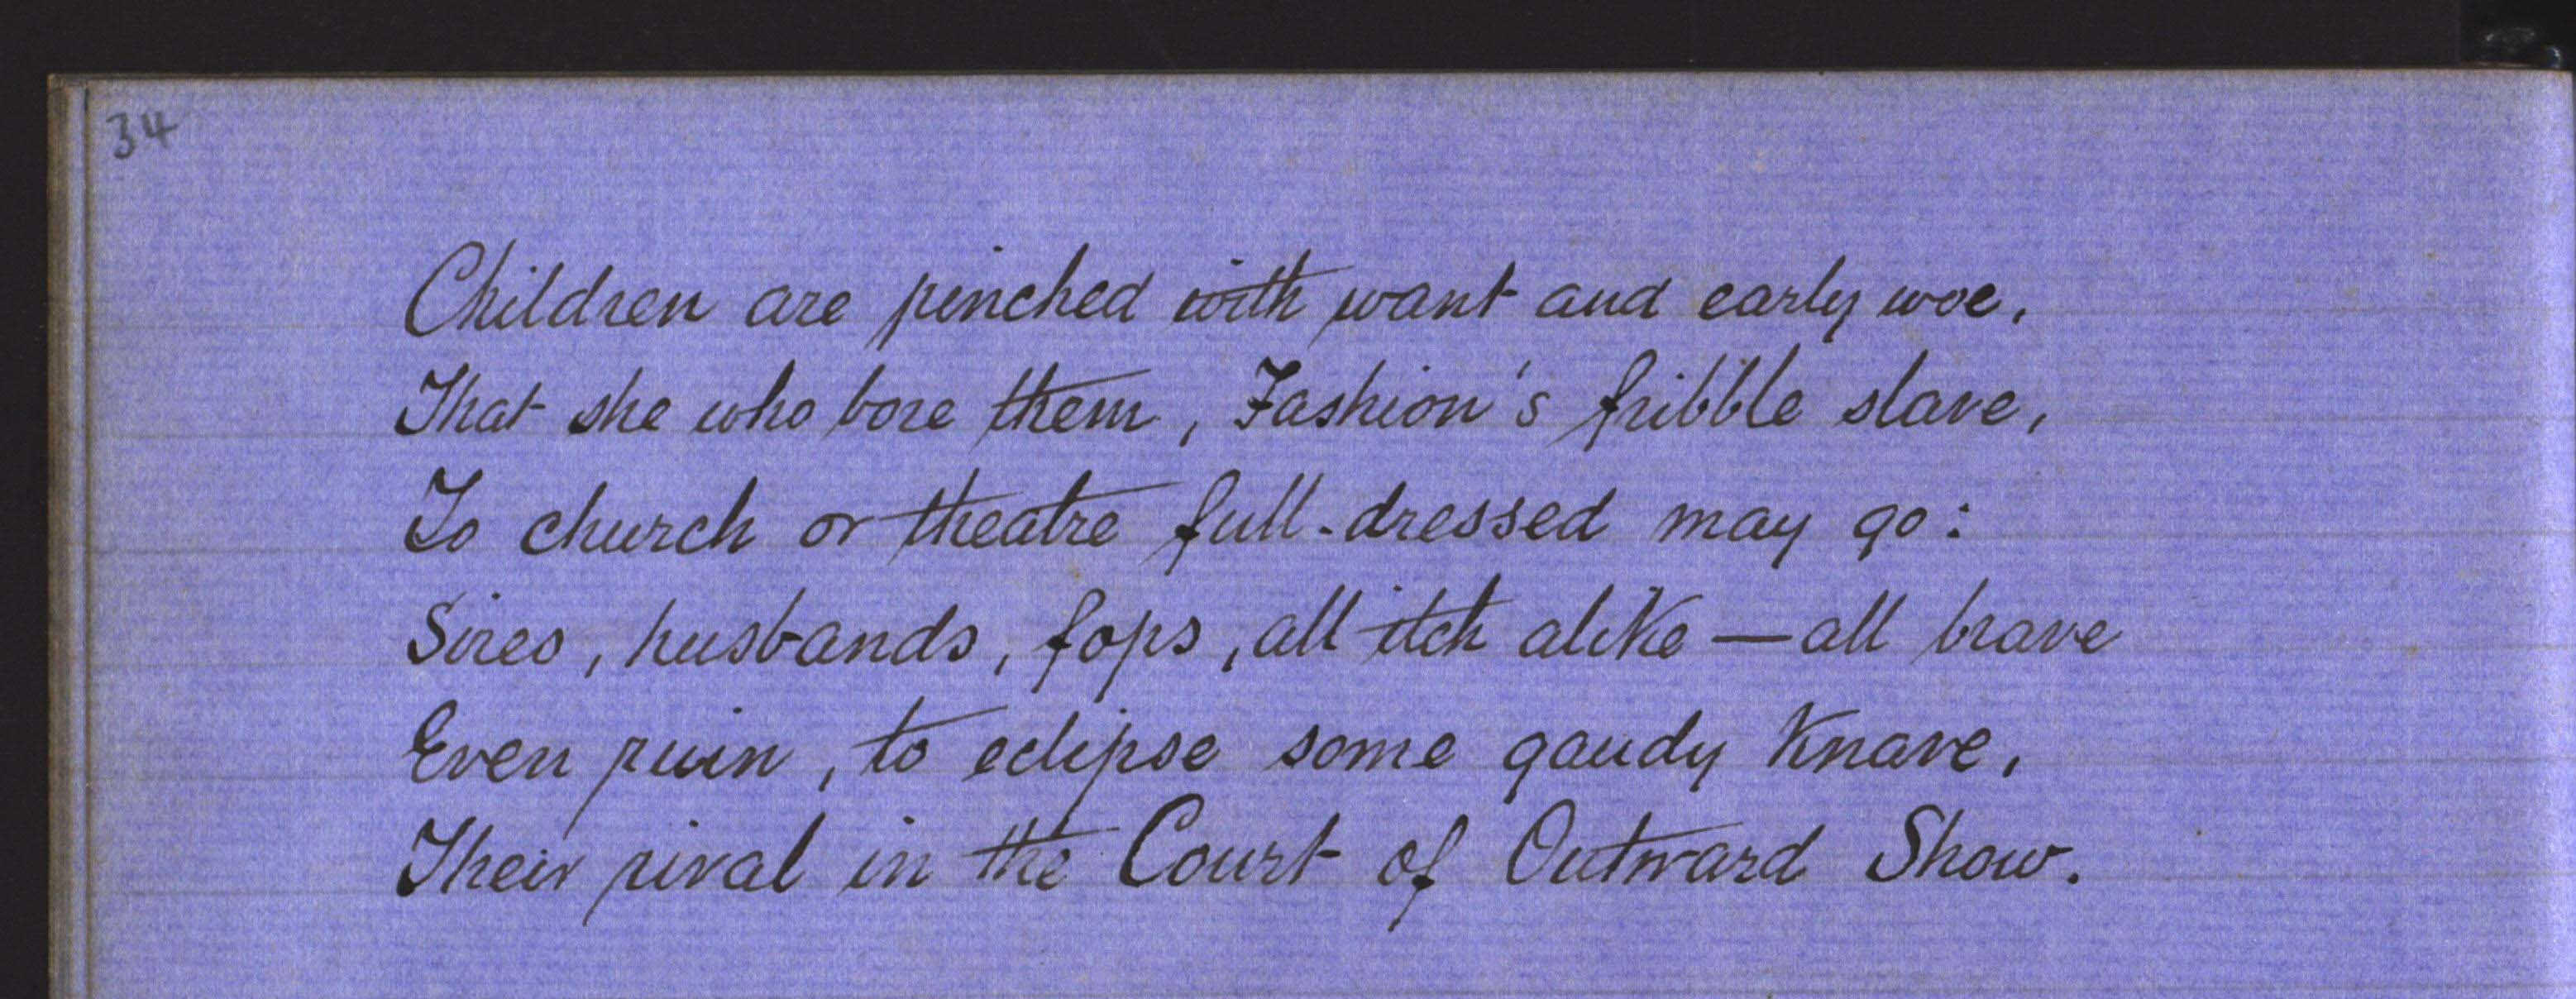 34
Children are pinched with want and early woe,
That she who bore them, Fashion's fribble slave,
To church or theatre full-dressed may go:
Sires, husbands, fops, all itch alike — all brave
Even ruin, to eclipse some gaudy knave,
Their rival in the Court of Outward Show.